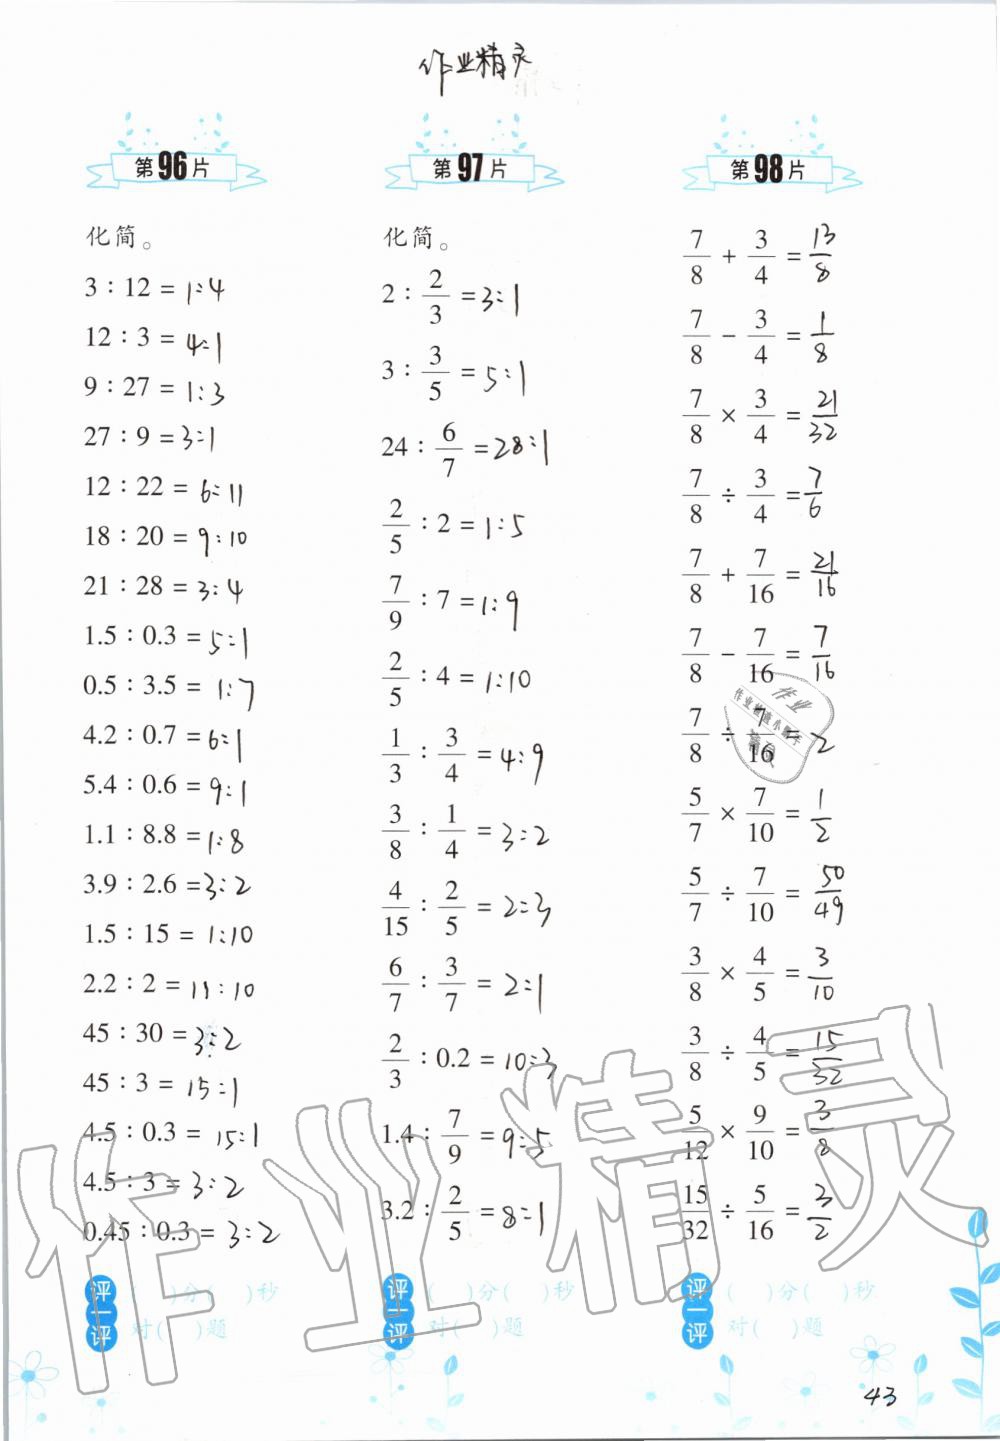 作业精灵
第96片
化简。
3 : 12 = 1:4
12 : 3 = 4:1
9 : 27 = 1:3
27 : 9 = 3:1
12 : 22 = 6:11
18 : 20 = 9:10
21 : 28 = 3:4
1.5 : 0.3 = 5:1
0.5 : 3.5 = 1:7
4.2 : 0.7 = 6:1
5.4 : 0.6 = 9:1
1.1 : 8.8 = 1:8
3.9 : 2.6 = 3:2
1.5 : 15 = 1:10
2.2 : 2 = 11:10
45 : 30 = 3:2
45 : 3 = 15:1
4.5 : 0.3 = 15:1
4.5 : 3 = 3:2
0.45 : 0.3 = 3:2
评一评 ( )分( )秒
对( )题
第97片
化简。
2 : 2/3 = 3:1
3 : 3/5 = 5:1
24 : 6/7 = 28:1
2/5 : 2 = 1:5
7/9 : 7 = 1:9
2/5 : 4 = 1:10
1/3 : 3/4 = 4:9
3/8 : 1/4 = 3:2
4/15 : 2/5 = 2:3
6/7 : 3/7 = 2:1
2/3 : 0.2 = 10:3
1.4 : 7/9 = 9:5
3.2 : 2/5 = 8:1
评一评 ( )分( )秒
对( )题
第98片
7/8 + 3/4 = 13/8
7/8 - 3/4 = 1/8
7/8 × 3/4 = 21/32
7/8 ÷ 3/4 = 7/6
7/8 + 7/16 = 21/16
7/8 - 7/16 = 7/16
7/8 ÷ 7/16 = 2
5/7 × 7/10 = 1/2
5/7 ÷ 7/10 = 50/49
3/8 × 4/5 = 3/10
3/8 ÷ 4/5 = 15/32
5/12 × 9/10 = 3/8
15/32 ÷ 5/16 = 3/2
评一评 ( )分( )秒
对( )题
作业精灵
43